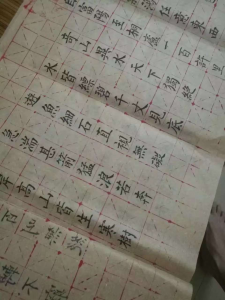 任意東西
陽至桐廬一百許里
奇山異水天下獨絕
水皆縹碧千丈見底
遊魚細石直視無礙
急湍甚箭猛浪若奔
岸高山皆生寒樹
百
不